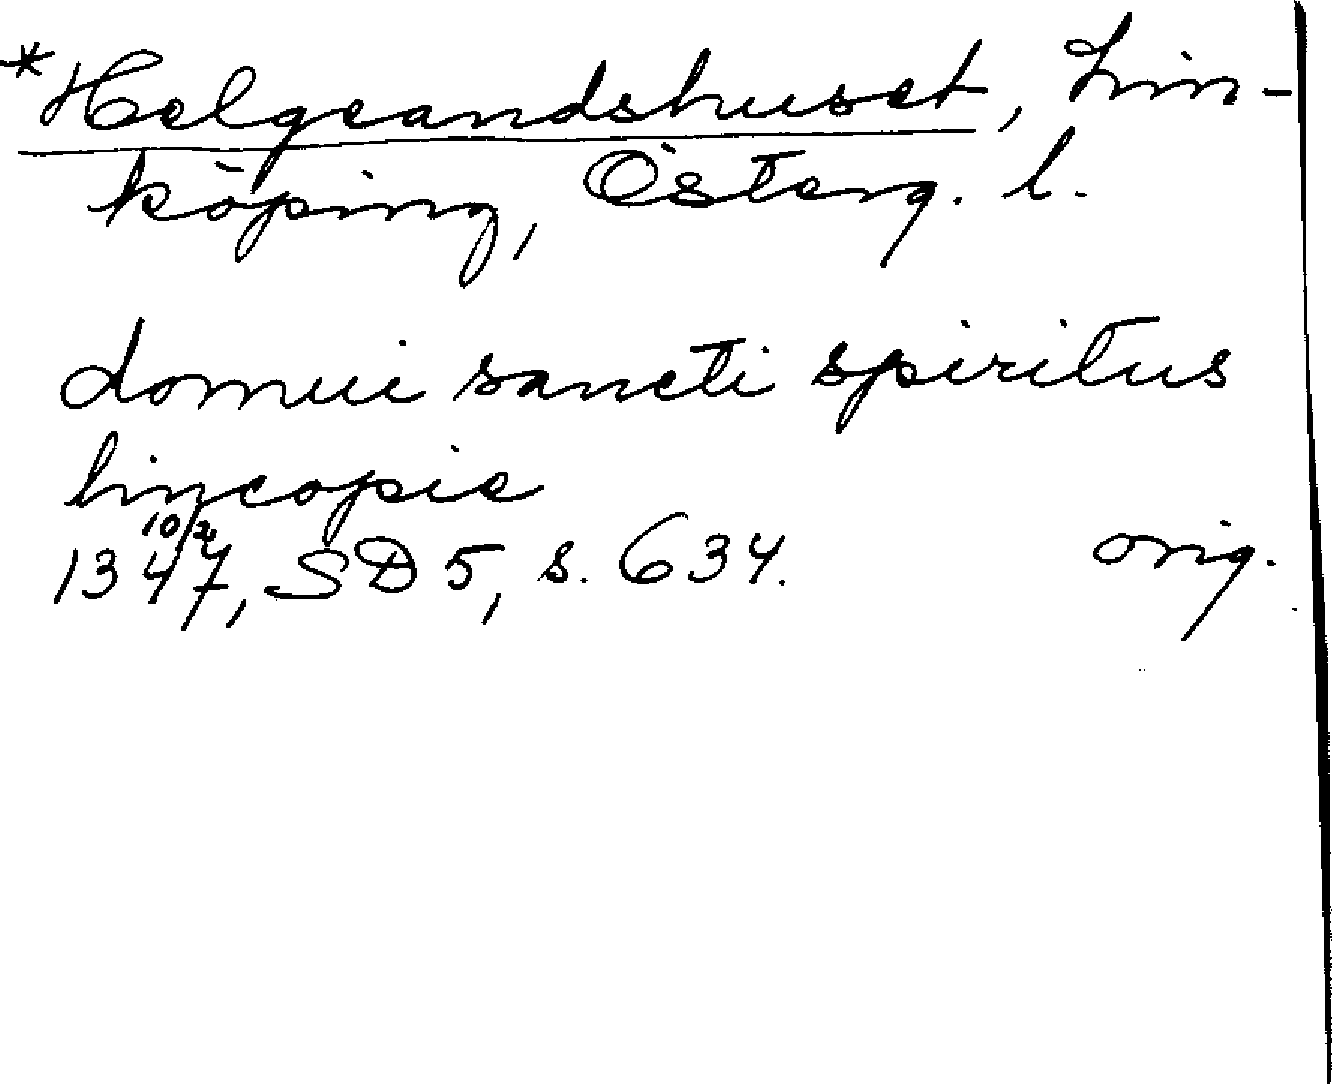 *Helgeandshuset, Lin-
köping, Österg. l.
domui sancti spiritus
lincopie
10/2
1347, SD 5, s. 634. orig.